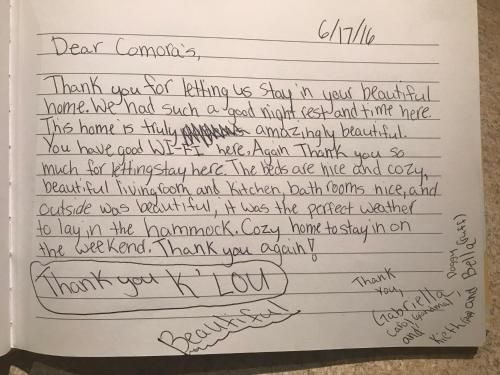 6/17/16
Dear Comora's,
Thank you for letting us stay in your beautiful
home. We had such a good night rest and time here.
This home is truly amazingly beautiful.
You have good WI-FI here. Again Thank you so
much for letting stay here. The beds are nice and cozy,
beautiful livingroom and kitchen, bathrooms nice, and
outside was beautiful, it was the perfect weather
to lay in the hammock. Cozy home to stay in on
the weekend. Thank you again!
Thank you K'LOU
Beautiful
Thank
you,
Gabriella
and
and Bella
Doggy